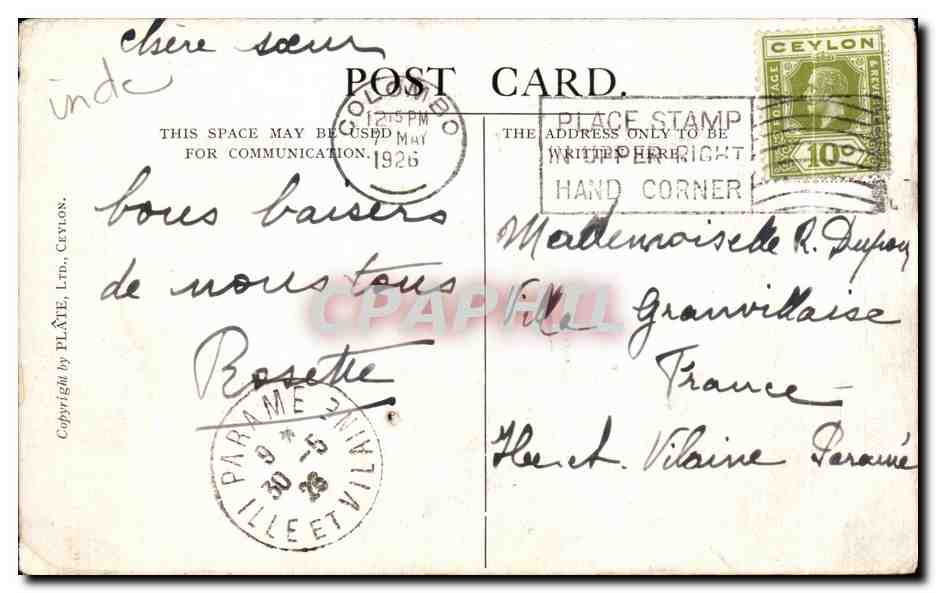 chère sœur
inde
POST CARD.
THIS SPACE MAY BE USED
FOR COMMUNICATION.
COLOMBO
12 15 PM
7 MAY
1926
THE ADDRESS ONLY TO BE
WRITTEN HERE.
PLACE STAMP
IN UPPER RIGHT
HAND CORNER
CEYLON
POSTAGE
10
bons baisers
de nous tous
Rosette
Mademoiselle R.
Villa Granvillaise
France
Ille et Vilaine Paramé
CPAPHIL
PARAME
9 * -5
30 26
ILLE ET VILAINE
Copyright by PLÂTE, LTD., CEYLON.